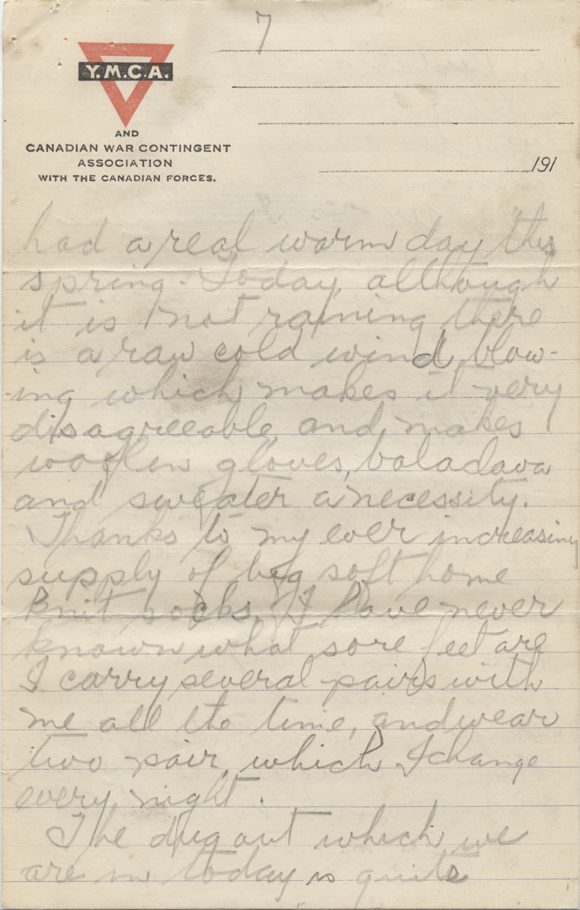 7
Y.M.C.A.
AND
CANADIAN WAR CONTINGENT
ASSOCIATION
WITH THE CANADIAN FORCES.
191
had a real warm day this
spring. Today allthough
it is not raining there
is a raw cold wind blow-
ing which makes it very
disagreeable and makes
woolen gloves, baladava
and sweater a necessity.
Thanks to my ever increasing
supply of big soft home
knit socks I have never
known what sore feet are
I carry several pairs with
me all the time, and wear
two pair which I change
every night.
The dug out which we
are in today is quite